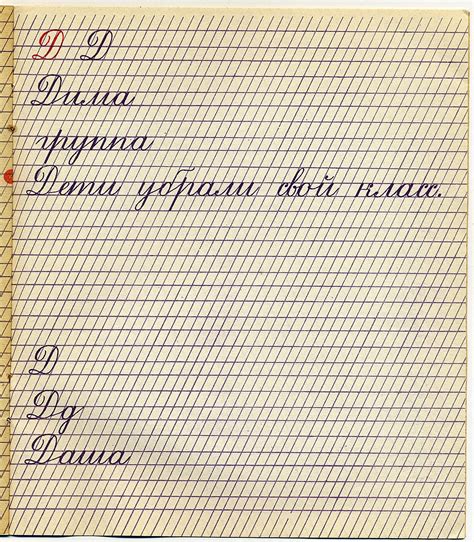 Д Д
Дима
группа
Дети убрали свой класс.
Д
Дд
Даша